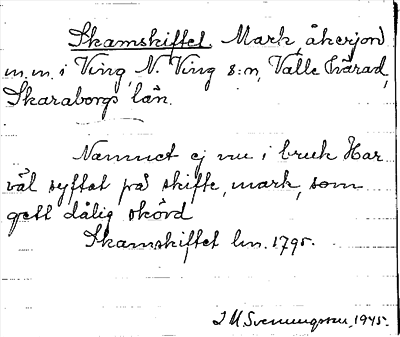 Skamskiffet, Mark, åkerjord
m.m. i Ving, N. Ving s:n, Valle härad,
Skaraborgs län.
Namnet ej nu i bruk Har
väl syftat på skifte, mark, som
gett dålig skörd
Skamskiffet lm. 1795.
J M Svenungsson, 1945.